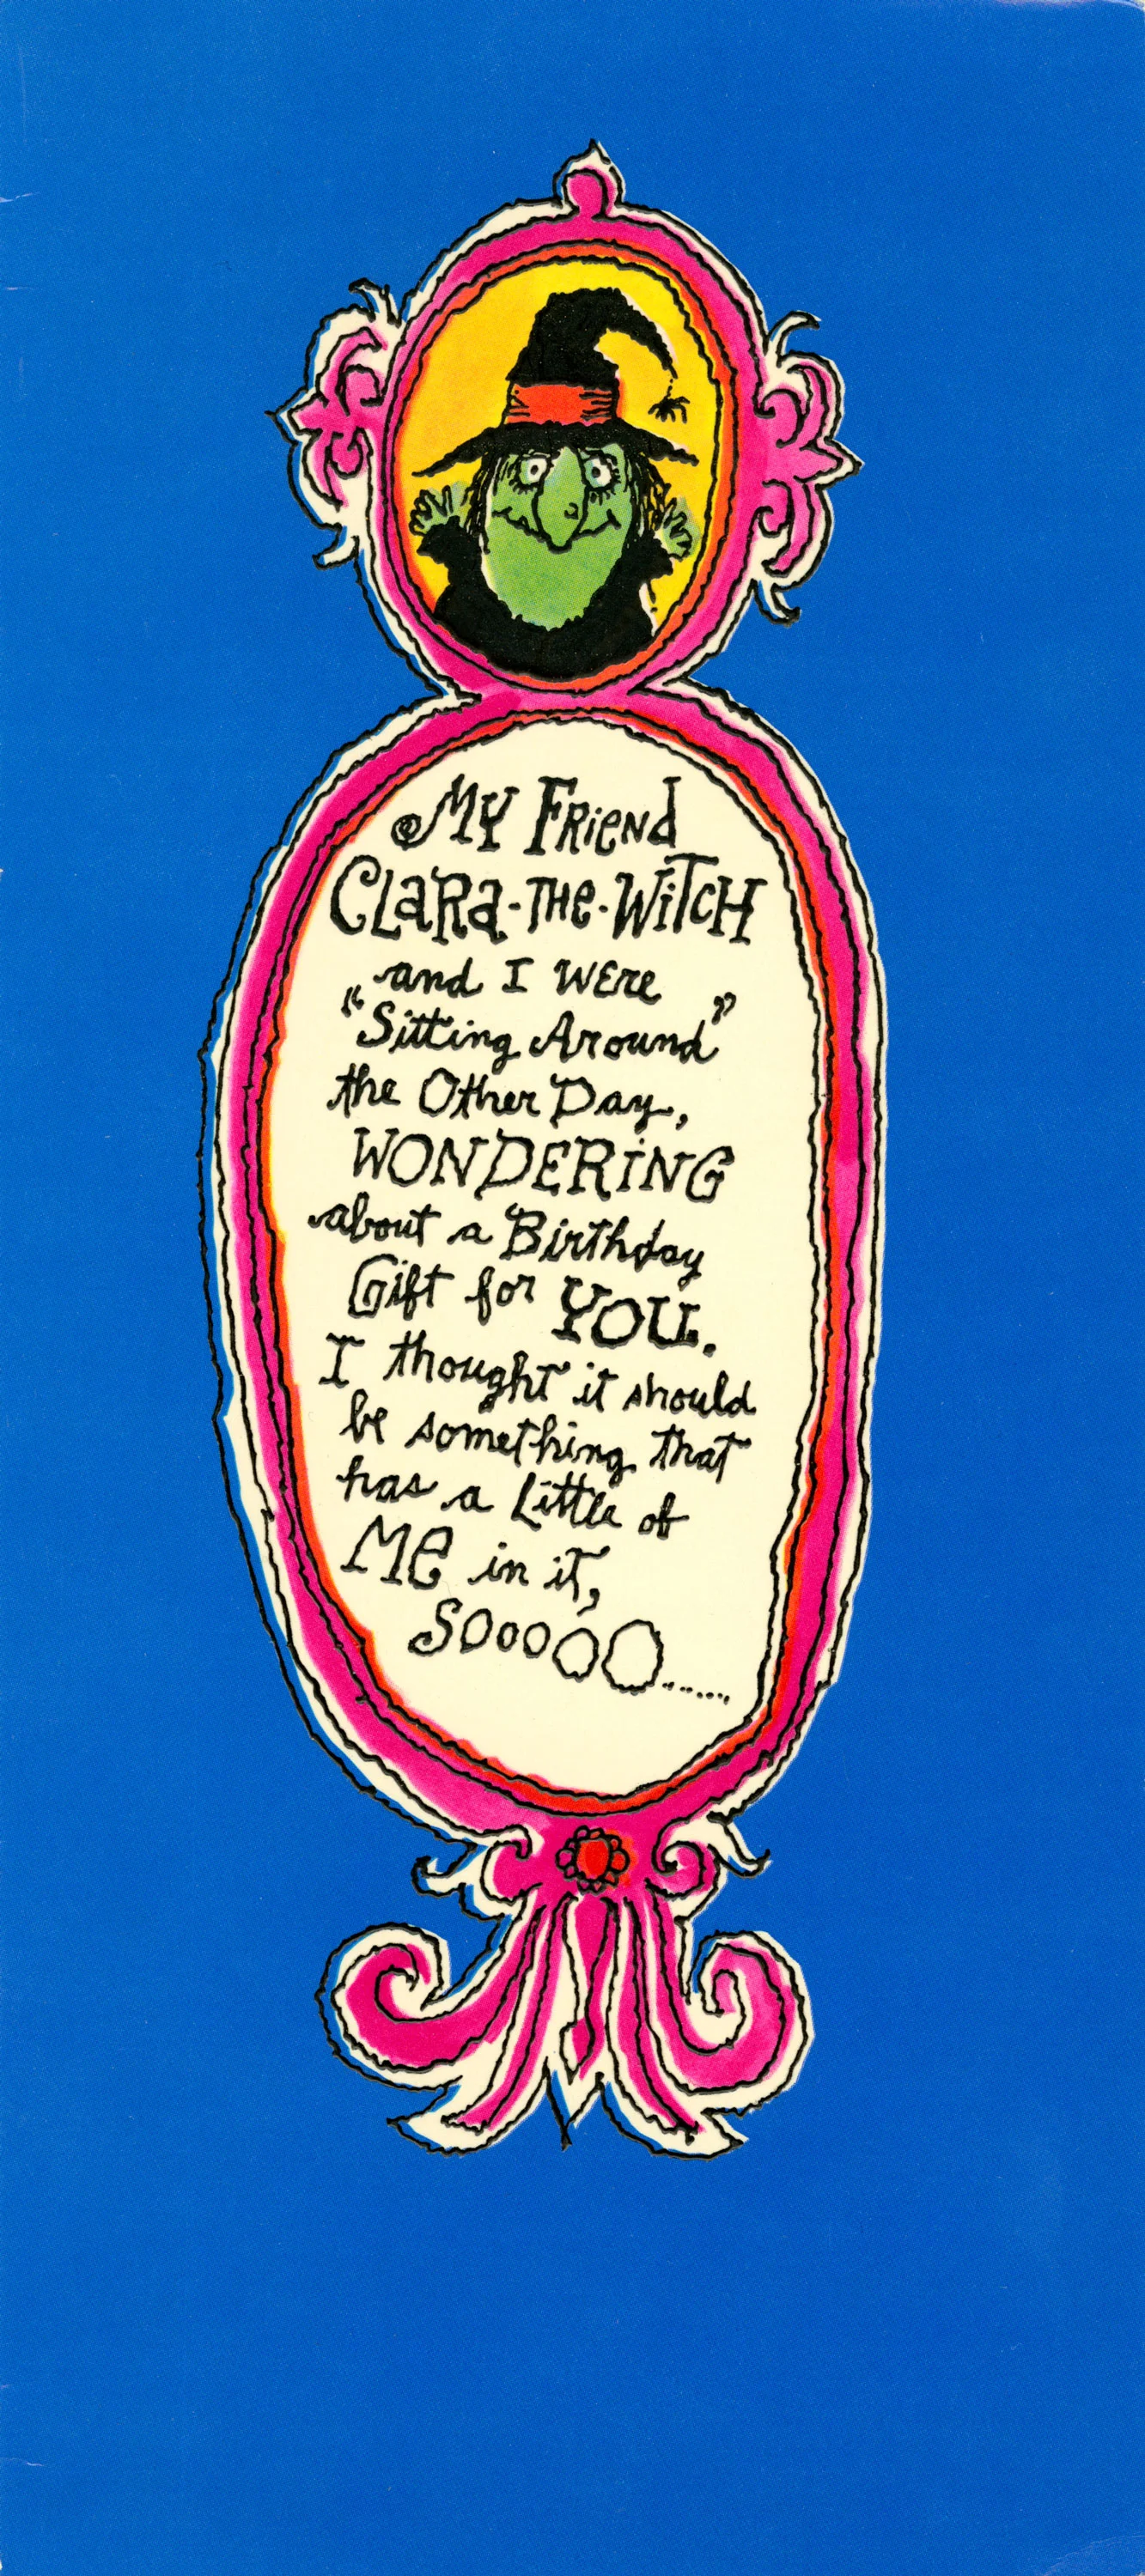 My Friend
Clara-the-Witch
and I were
"Sitting Around"
the Other Day,
WONDERING
about a Birthday
Gift for YOU.
I thought it should
be something that
has a Little of
ME in it,
SOoooO......